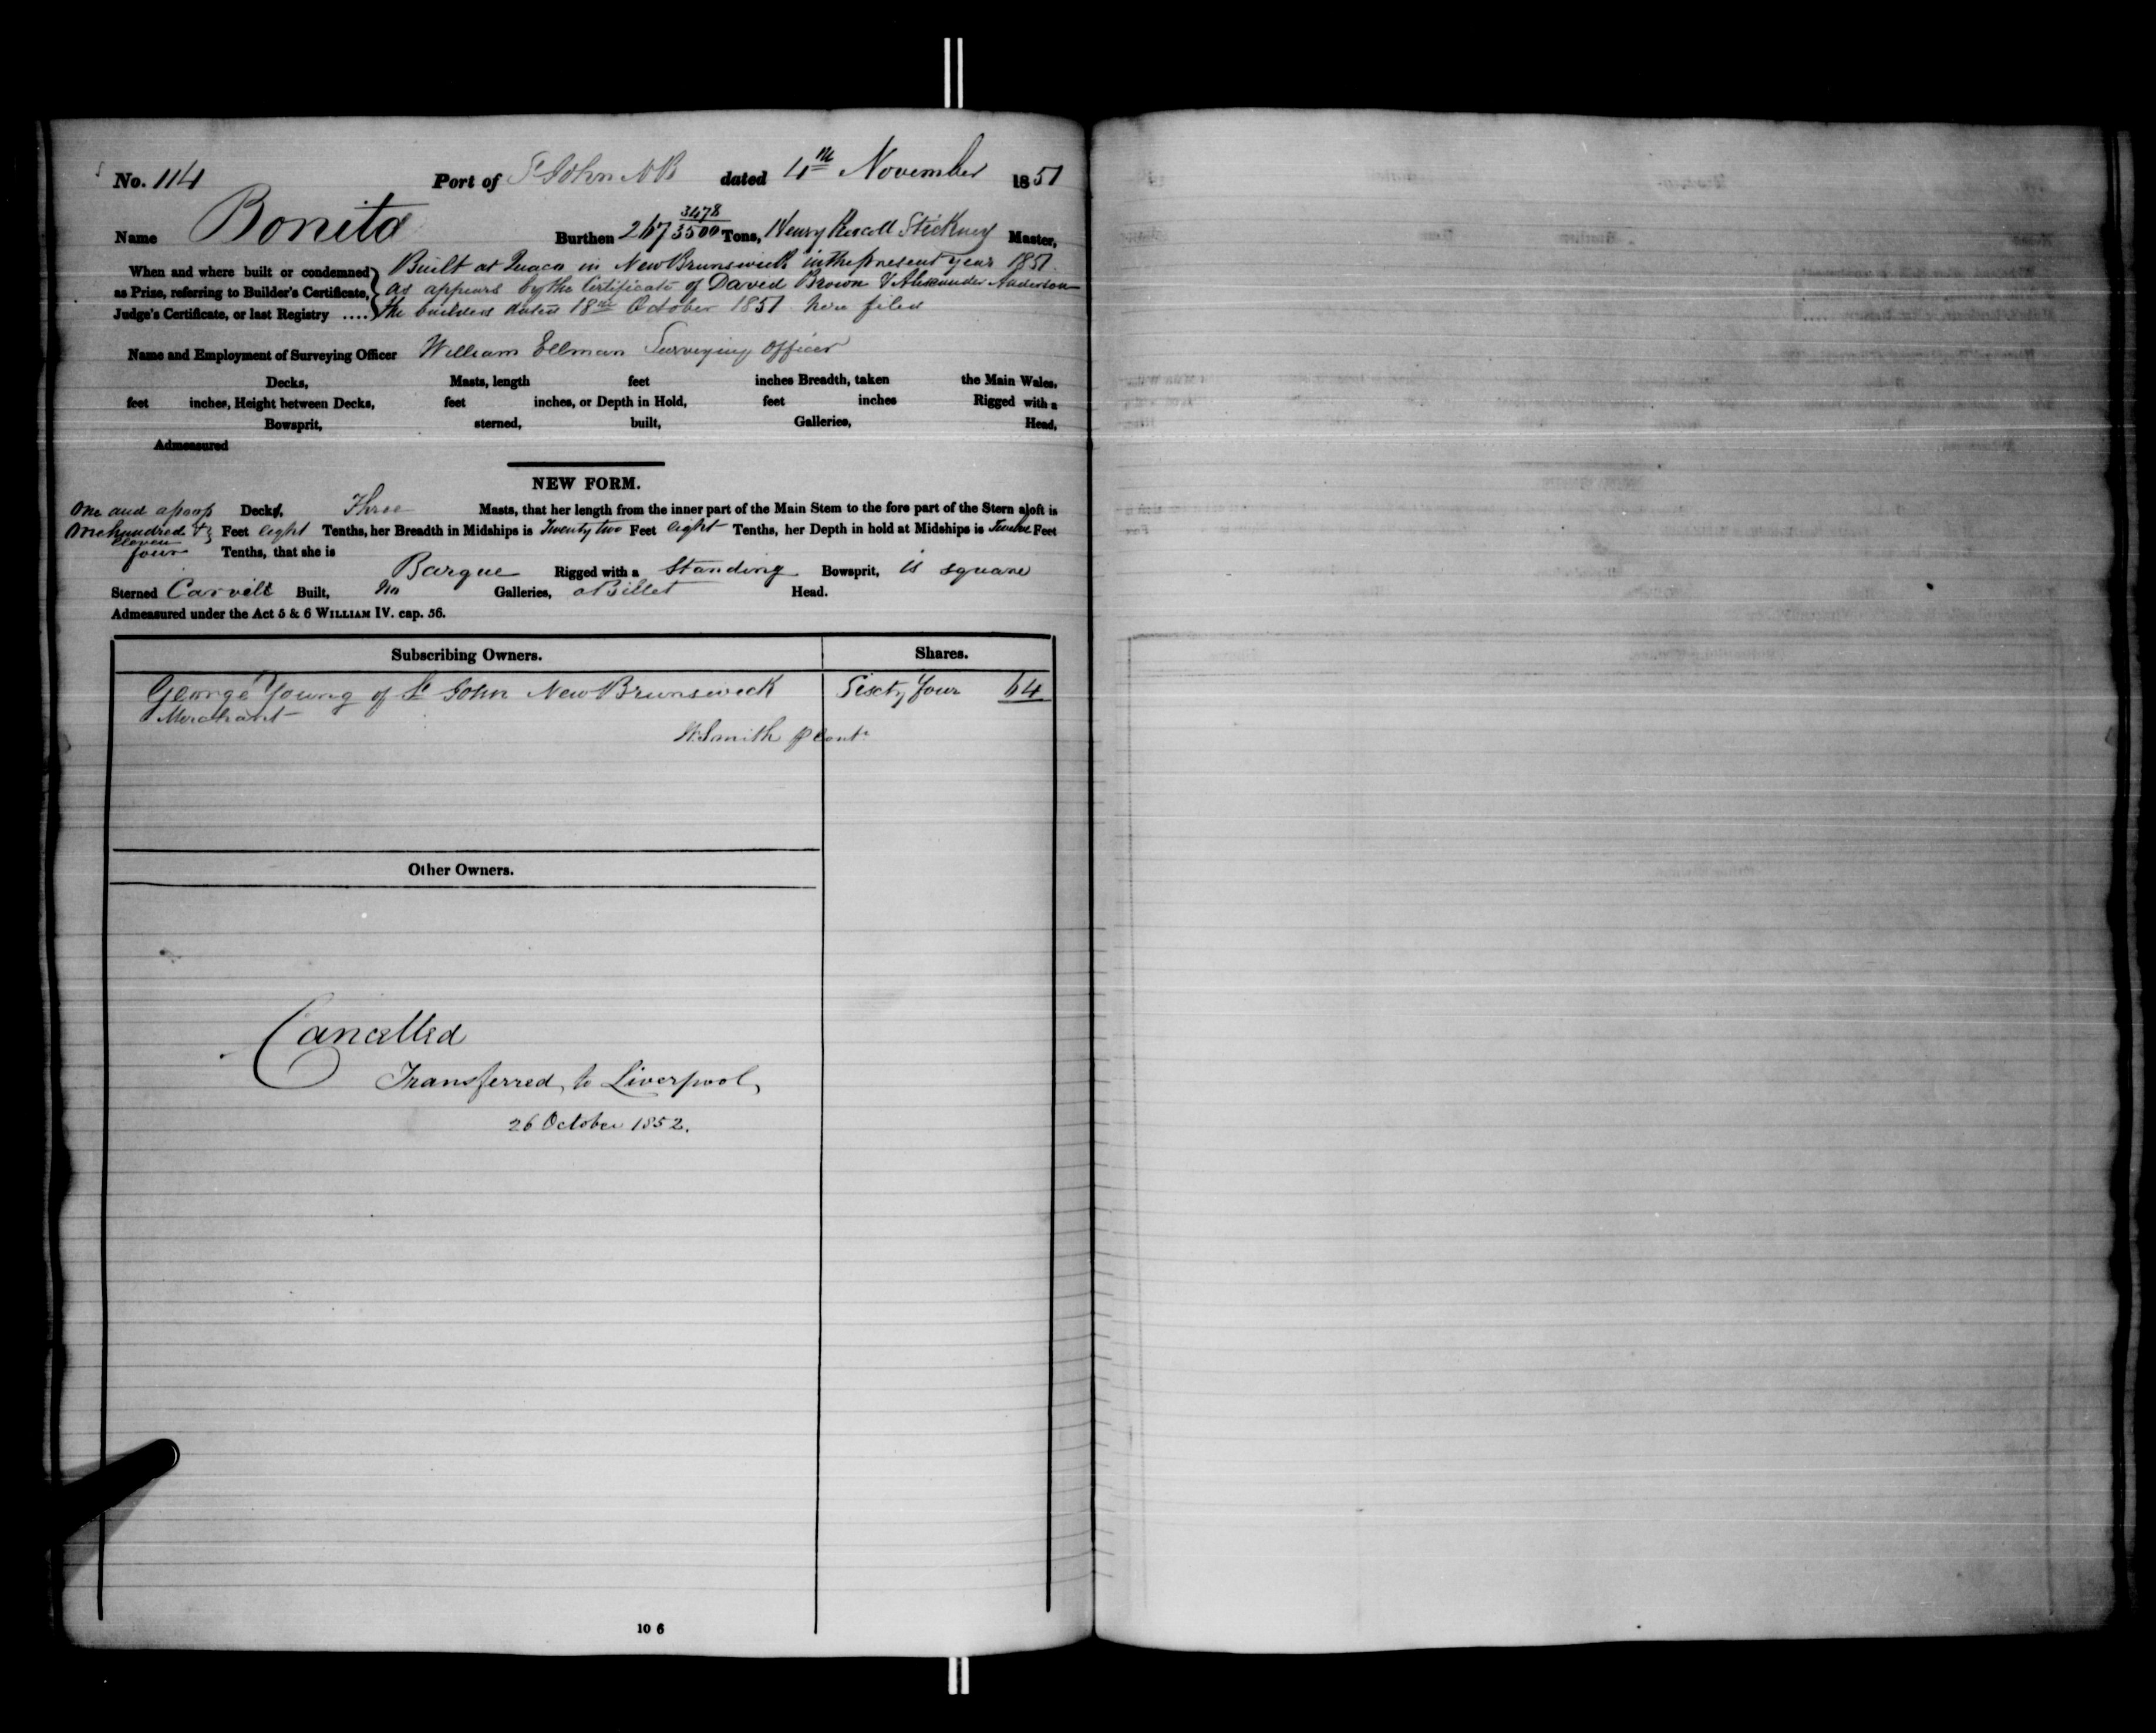 No. 114 Port of St John N B dated 4th November 1851
Name Bonita Burthen 267 3478/3500 Tons, Henry Stickney Master,
When and where built or condemned Built at Quaco in New Brunswick in the present year 1851.
as Prize, referring to Builder's Certificate, as appears by the Certificate of David Brown & Alexander Anderson
Judge's Certificate, or last Registry .... the builders dated 18th October 1851 here filed
Name and Employment of Surveying Officer William Ellman Surveying Officer
Decks, Masts, length feet inches Breadth, taken the Main Wales,
feet inches, Height between Decks, feet inches, or Depth in Hold, feet inches Rigged with a
Bowsprit, sterned, built, Galleries, Head,
Admeasured
NEW FORM.
One and a poop Deck, Three Masts, that her length from the inner part of the Main Stem to the fore part of the Stern aloft is
One hundred & eleven Feet eight Tenths, her Breadth in Midships is Twenty two Feet eight Tenths, her Depth in hold at Midships is Twelve Feet
four Tenths, that she is
Barque Rigged with a Standing Bowsprit, is square
Sterned Carvel Built, No Galleries, a Billet Head.
Admeasured under the Act 5 & 6 WILLIAM IV. cap. 56.
Subscribing Owners. Shares.
George Young of St John New Brunswick Sixty four 64
Merchant
Smith
Other Owners.
Cancelled
Transferred to Liverpool,
26 October 1852.
10 6